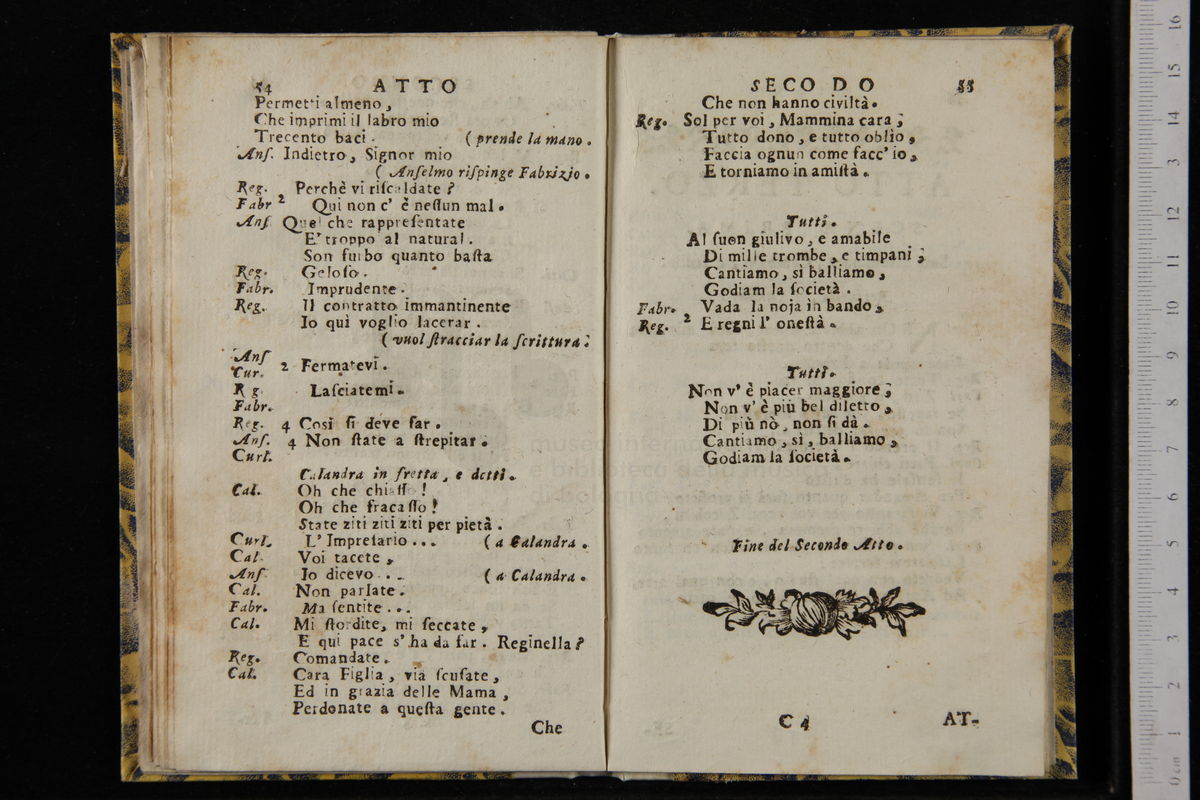 54 ATTO
Permetti almeno,
Che imprimi il labro mio
Trecento baci. (prende la mano.
Anſ. Indietro, Signor mio
( Anſelmo riſpinge Fabrizio.
Reg. Perchè vi riſcaldate?
Fabr 2 Qui non c' è neſſun mal.
Anſ Quel che rappreſentate
E' troppo al natural.
Son furbo quanto baſta
Reg. Geloſo.
Fabr. Imprudente.
Reg. Il contratto immantinente
Io quì voglio lacerar.
( vuol ſtracciar la ſcrittura.
Anſ
Cur. 2 Fermatevi.
R g. Laſciatemi.
Fabr.
Reg. 4 Così ſi deve far.
Anſ. 4 Non ſtate a ſtrepitar.
Curl.
Calandra in fretta, e detti.
Cal. Oh che chiaſſo!
Oh che fracaſſo!
State ziti ziti ziti per pietà.
Curl. L' Impreſario... (a Calandra.
Cal. Voi tacete,
Anſ. Io dicevo... (a Calandra.
Cal. Non parlate.
Fabr. Ma ſentite...
Cal. Mi ſtordite, mi ſeccate,
E qui pace s' ha da far. Reginella?
Reg. Comandate.
Cal. Cara Figlia, via ſcuſate,
Ed in grazia delle Mama,
Perdonate a queſta gente.
Che
SECO DO 55
Che non hanno civiltà.
Reg. Sol per voi, Mammina cara;
Tutto dono, e tutto oblio,
Faccia ognun come facc' io,
E torniamo in amiſtà.
Tutti.
Al ſuon giulivo, e amabile
Di mille trombe, e timpani;
Cantiamo, sì balliamo,
Godiam la ſocietà.
Fabr. Vada la noja in bando,
Reg. 2 E regni l' oneſtà.
Tutti.
Non v' è piacer maggiore;
Non v' è più bel diletto,
Di più nò, non ſi dà.
Cantiamo, sì, balliamo,
Godiam la ſocietà.
Fine del Secondo Atto.
C 4 AT-